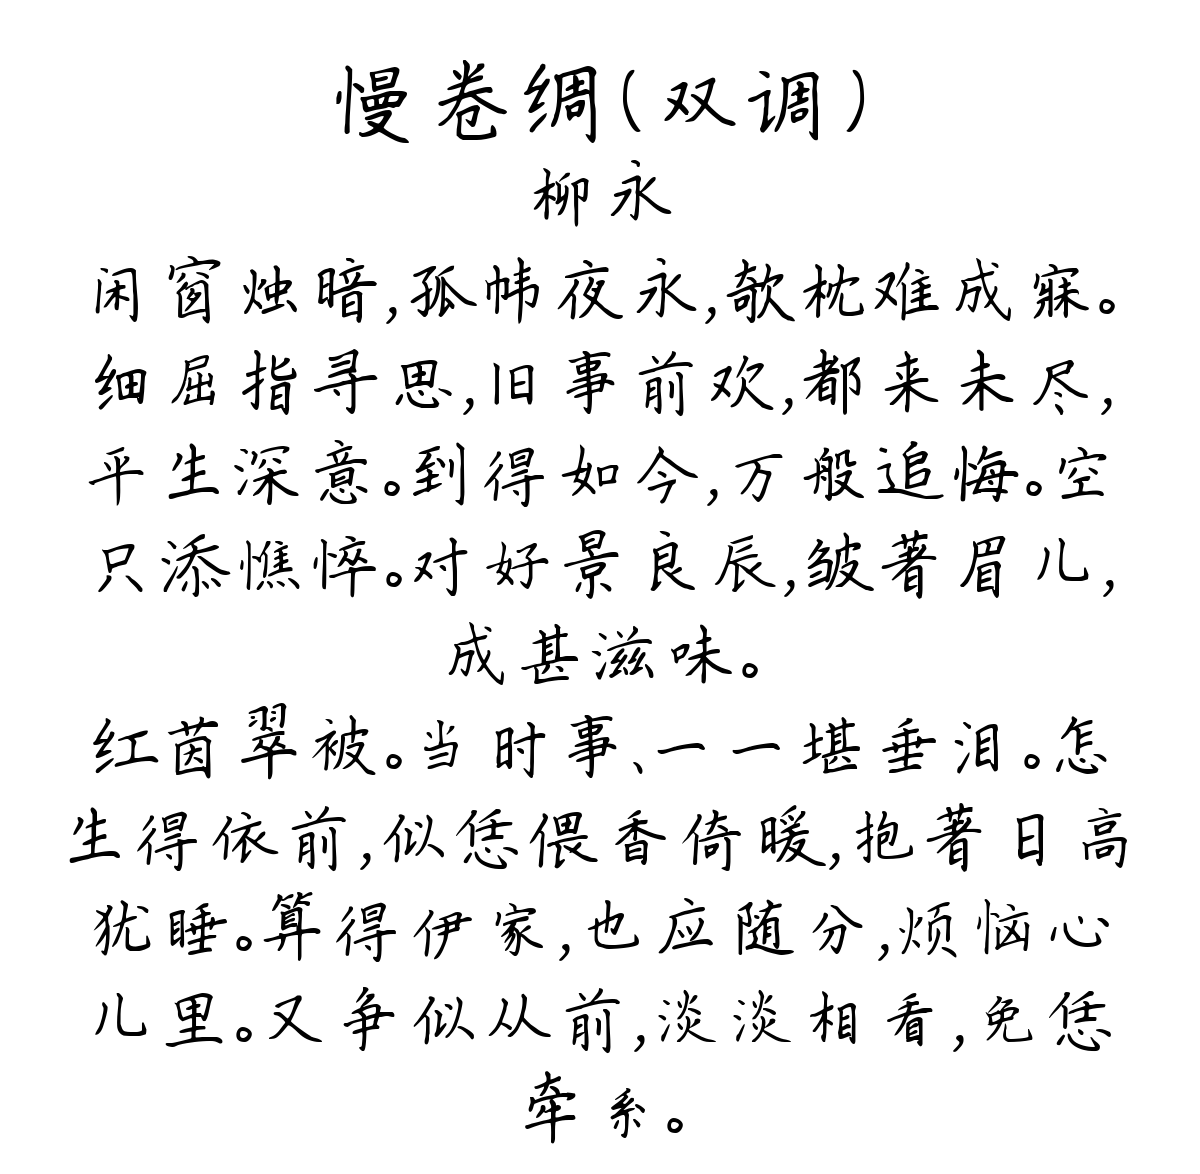 慢卷绸(双调)
柳永
闲窗烛暗,孤帏夜永,欹枕难成寐。
细屈指寻思,旧事前欢,都来未尽,
平生深意。到得如今,万般追悔。空
只添憔悴。对好景良辰,皱著眉儿,
成甚滋味。
红茵翠被。当时事、一一堪垂泪。怎
生得依前,似恁偎香倚暖,抱著日高
犹睡。算得伊家,也应随分,烦恼心
儿里。又争似从前,淡淡相看,免恁
牵系。